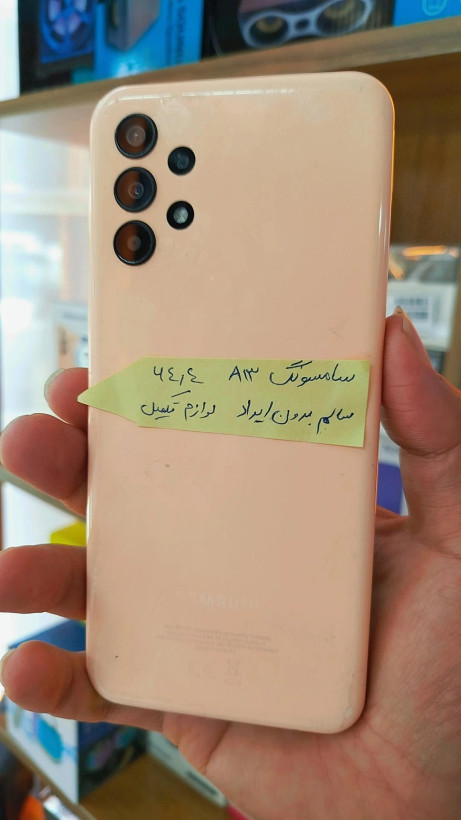 سامسونگ A۱۳ ۶۴٫۴
سالم بدون ایراد لوازم تکمیل